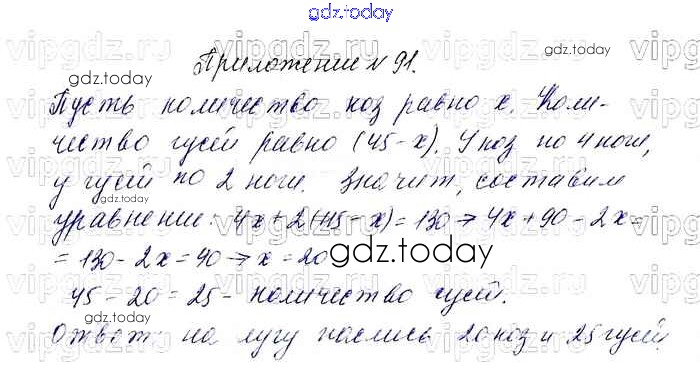 gdz.today
Приложение № 91.
Пусть количество коз равно x. Коли-
чество гусей равно (45-x). У коз по 4 ноги,
у гусей по 2 ноги. Значит, составим
уравнение: 4x+2(45-x)=130 → 4x+90-2x=
=130-2x=40 → x=20
45-20=25- количество гусей.
Ответ: на лугу паслись 20 коз и 25 гусей
vipgdz.ru
gdz.today
gdz.today
gdz.today
gdz.today